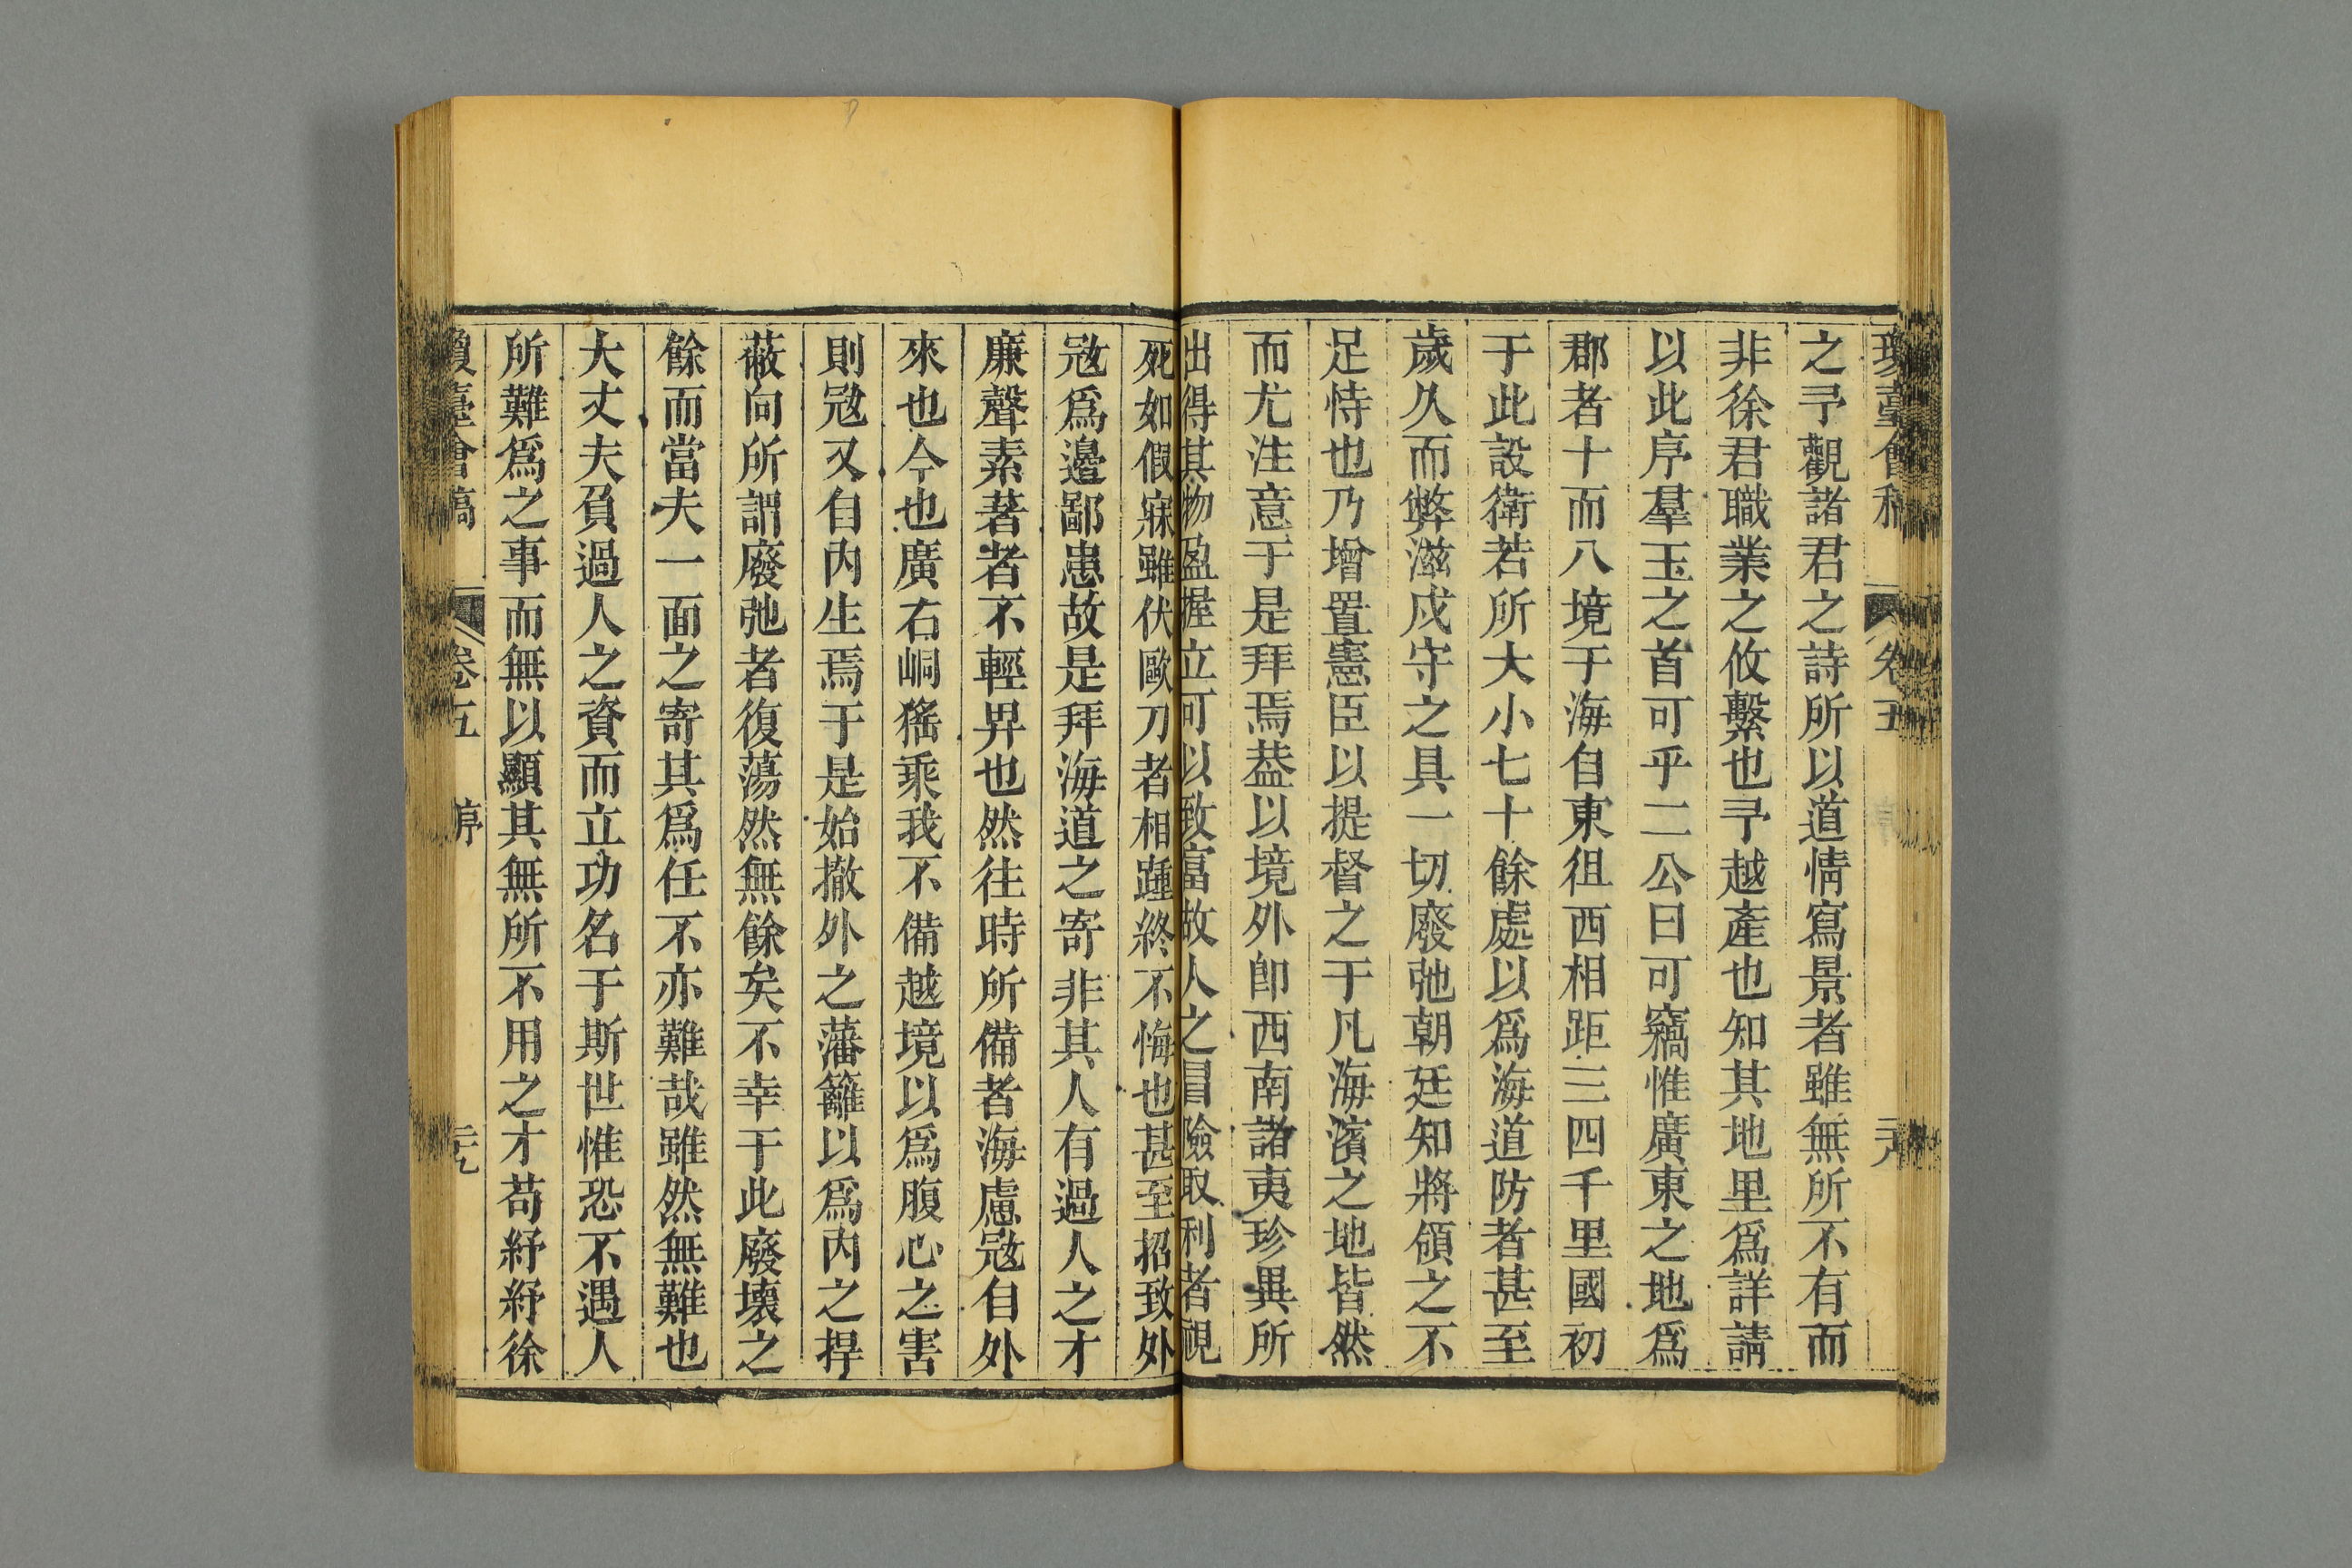 瓊臺會稿 卷五 二十八
之予觀諸君之詩所以道情寫景者雖無所不有而
非徐君職業之攸繫也予越產也知其地里爲詳請
以此序羣玉之首可乎二公曰可竊惟廣東之地爲
郡者十而八境于海自東徂西相距三四千里國初
于此設衛若所大小七十餘處以爲海道防者甚至
歲久而弊滋戍守之具一切廢弛朝廷知將領之不
足恃也乃增置憲臣以提督之于凡海濱之地皆然
而尤注意于是拜焉葢以境外卽西南諸夷珍異所
出得其物盈握立可以致富故人之冒險取利者視
死如假寐雖伏歐刀者相踵終不悔也甚至招致外
宼爲邊鄙患故是拜海道之寄非其人有過人之才
廉聲素著者不輕畀也然往時所備者海慮宼自外
來也今也廣右峒猺乘我不備越境以爲腹心之害
則宼又自内生焉于是始撤外之藩籬以爲内之捍
蔽向所謂廢弛者復蕩然無餘矣不幸于此廢壞之
餘而當夫一面之寄其爲任不亦難哉雖然無難也
大丈夫負過人之資而立功名于斯世惟恐不遇人
所難爲之事而無以顯其無所不用之才苟紆紆徐
瓊臺會稿 卷五 序 二十九